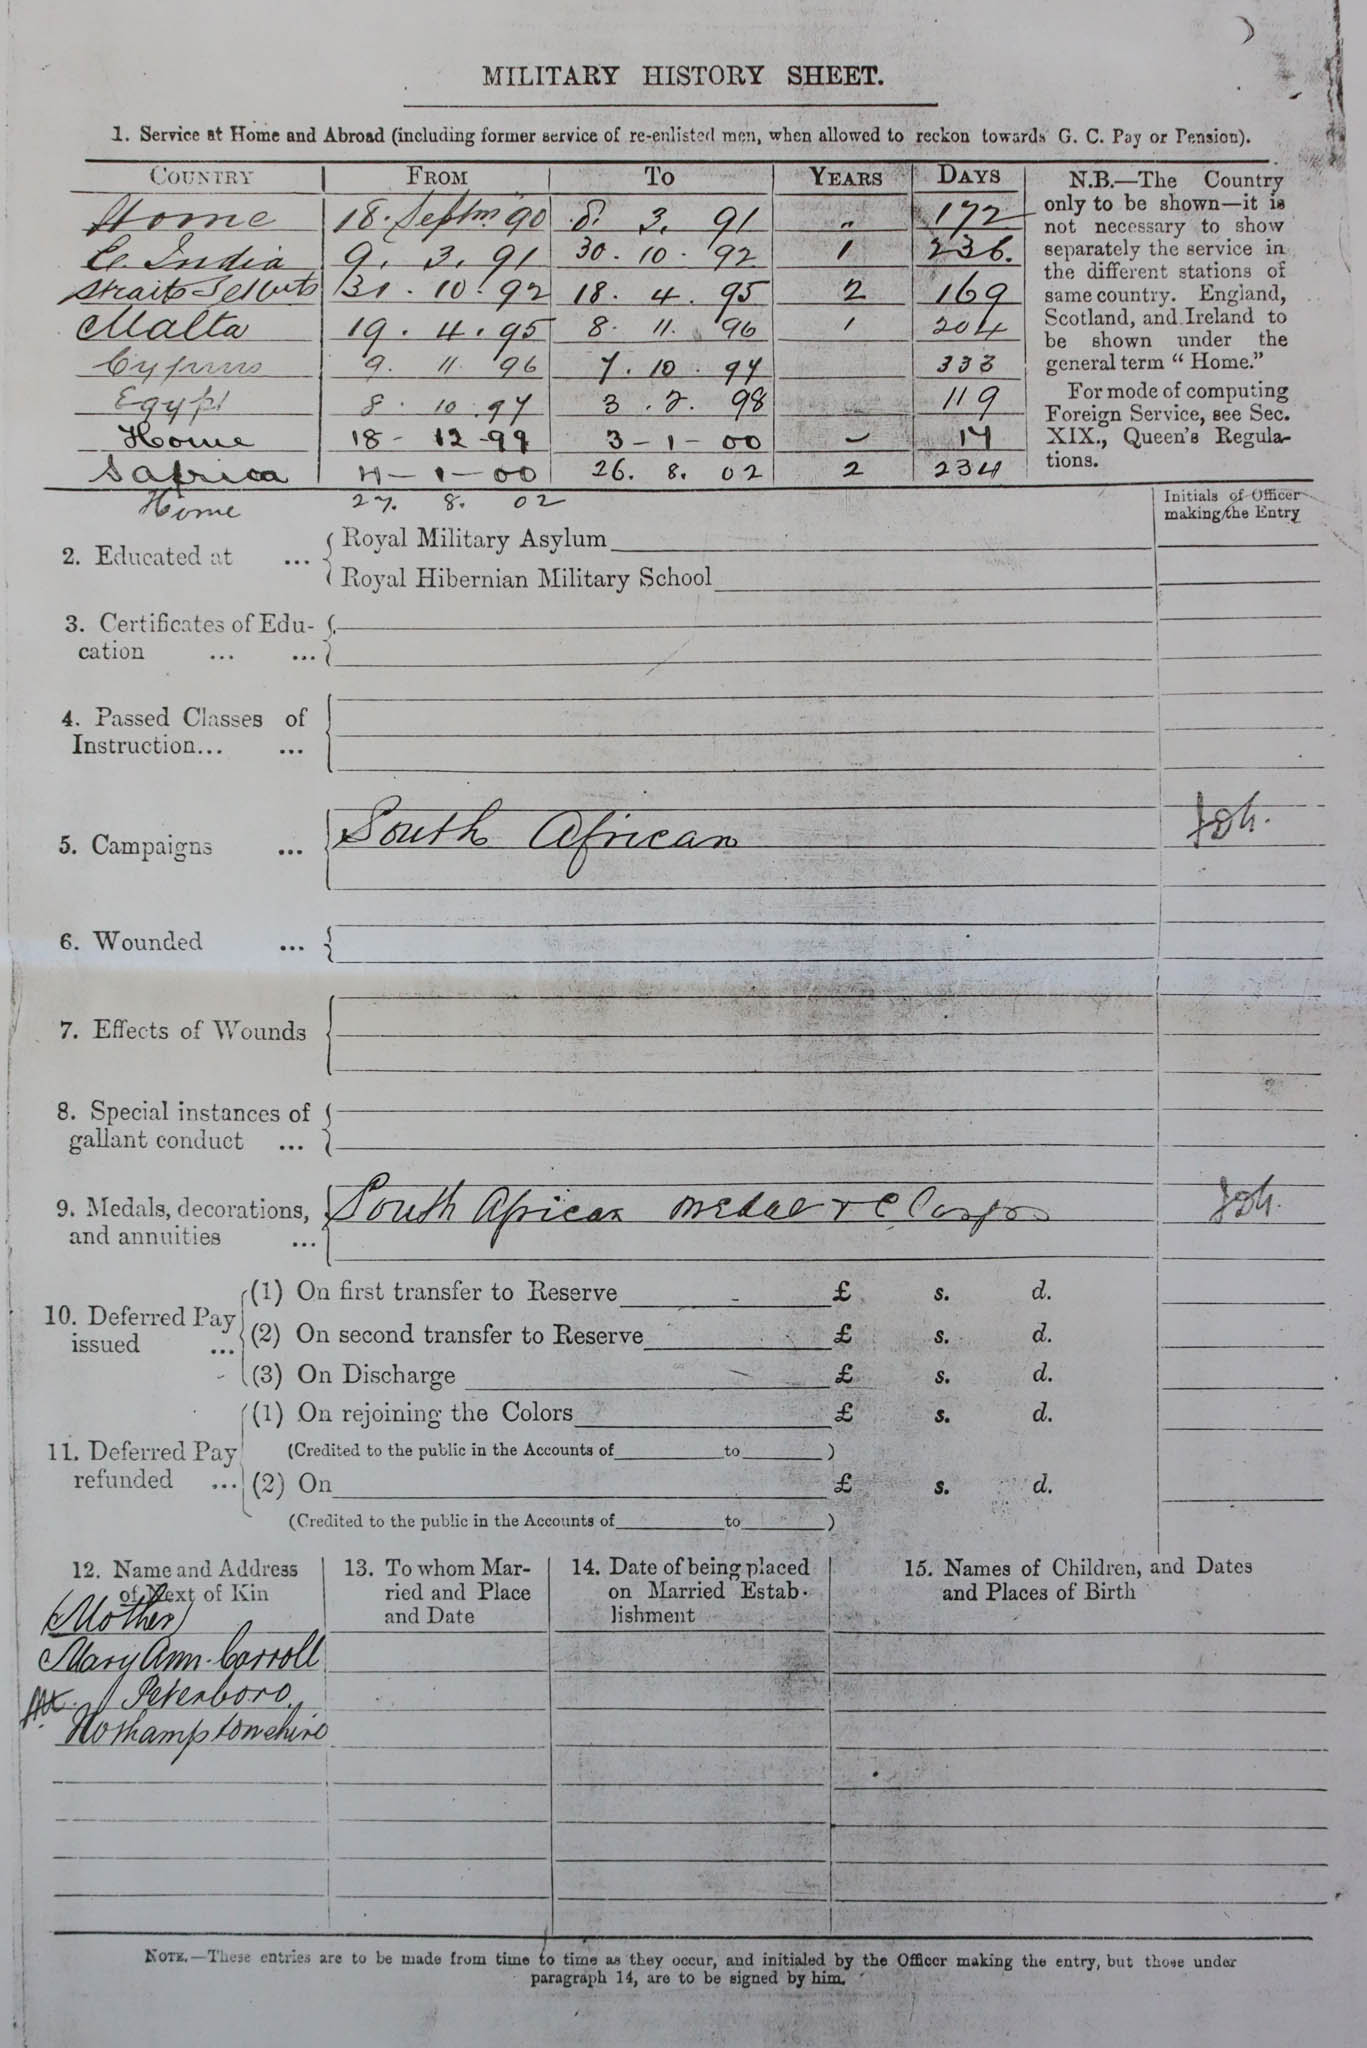 MILITARY HISTORY SHEET.
1. Service at Home and Abroad (including former service of re-enlisted men, when allowed to reckon towards G. C. Pay or Pension).
COUNTRY FROM TO YEARS DAYS
Home 18. Septm 90 8. 3. 91 " 172
E. India 9. 3. 91 30. 10. 92 1 236.
Straits Settlmts 31. 10. 92 18. 4. 95 2 169
Malta 19. 4. 95 8. 11. 96 1 204
Cyprus 9. 11. 96 7. 10. 97 333
Egypt 8. 10. 97 3. 2. 98 119
Home 18-12-99 3-1-00 - 17
Safrica 4-1-00 26. 8. 02 2 234
Home 27. 8. 02
N.B.—The Country
only to be shown—it is
not necessary to show
separately the service in
the different stations of
same country. England,
Scotland, and Ireland to
be shown under the
general term "Home."
For mode of computing
Foreign Service, see Sec.
XIX., Queen's Regula-
tions.
Initials of Officer
making the Entry
2. Educated at ... Royal Military Asylum
Royal Hibernian Military School
3. Certificates of Edu-
cation ... ...
4. Passed Classes of
Instruction... ...
5. Campaigns ... South African
6. Wounded ...
7. Effects of Wounds
8. Special instances of
gallant conduct ...
9. Medals, decorations,
and annuities ... South African medal & Clasps
10. Deferred Pay
issued ...
(1) On first transfer to Reserve £ s. d.
(2) On second transfer to Reserve £ s. d.
(3) On Discharge £ s. d.
11. Deferred Pay
refunded ...
(1) On rejoining the Colors £ s. d.
(Credited to the public in the Accounts of to )
(2) On £ s. d.
(Credited to the public in the Accounts of to )
12. Name and Address
of Next of Kin
13. To whom Mar-
ried and Place
and Date
14. Date of being placed
on Married Estab-
lishment
15. Names of Children, and Dates
and Places of Birth
(Mother)
Mary Ann Carroll
Peterboro
Nothamptonshire
NOTE.—These entries are to be made from time to time as they occur, and initialed by the Officer making the entry, but those under
paragraph 14, are to be signed by him.